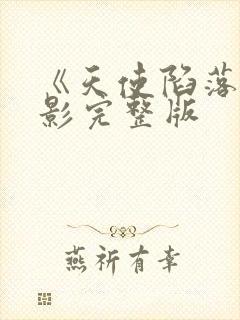 《天使陷落
影完整版
燕祈有幸